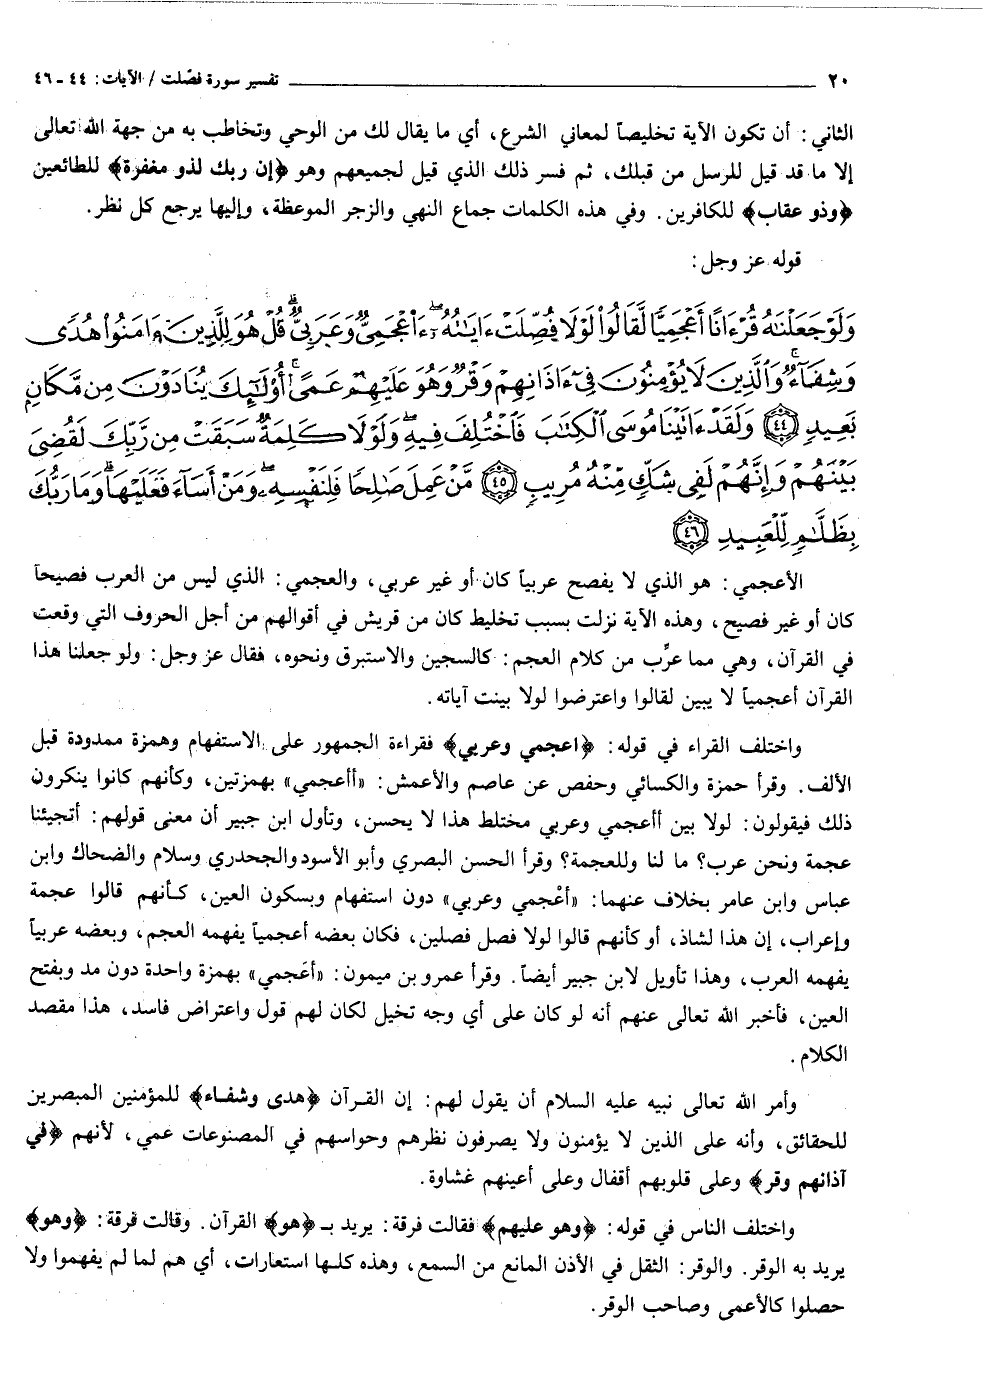 ٢٠ تفسير سورة فصّلت / الآيات: ٤٤ - ٤٦
الثاني: أن تكون الآية تخليصاً لمعاني الشرع، أي ما يقال لك من الوحي وتخاطب به من جهة الله تعالى
إلا ما قد قيل للرسل من قبلك، ثم فسر ذلك الذي قيل لجميعهم وهو ﴿إن ربك لذو مغفرة﴾ للطائعين
﴿وذو عقاب﴾ للكافرين. وفي هذه الكلمات جماع النهي والزجر الموعظة، وإليها يرجع كل نظر.
قوله عز وجل:
وَلَوْ جَعَلْنَٰهُ قُرْءَانًا أَعْجَمِيًّا لَّقَالُوا۟ لَوْلَا فُصِّلَتْ ءَايَٰتُهُۥٓ ۖ ءَا۬عْجَمِىٌّ وَعَرَبِىٌّ ۗ قُلْ هُوَ لِلَّذِينَ ءَامَنُوا۟ هُدًى
وَشِفَآءٌ ۖ وَٱلَّذِينَ لَا يُؤْمِنُونَ فِىٓ ءَاذَانِهِمْ وَقْرٌ وَهُوَ عَلَيْهِمْ عَمًى ۚ أُو۟لَٰٓئِكَ يُنَادَوْنَ مِن مَّكَانٍۭ
بَعِيدٍ ﴿٤٤﴾ وَلَقَدْ ءَاتَيْنَا مُوسَى ٱلْكِتَٰبَ فَٱخْتُلِفَ فِيهِ ۗ وَلَوْلَا كَلِمَةٌ سَبَقَتْ مِن رَّبِّكَ لَقُضِىَ
بَيْنَهُمْ ۚ وَإِنَّهُمْ لَفِى شَكٍّ مِّنْهُ مُرِيبٍ ﴿٤٥﴾ مَّنْ عَمِلَ صَٰلِحًا فَلِنَفْسِهِۦ ۖ وَمَنْ أَسَآءَ فَعَلَيْهَا ۗ وَمَا رَبُّكَ
بِظَلَّٰمٍ لِّلْعَبِيدِ ﴿٤٦﴾
الأعجمي: هو الذي لا يفصح عربياً كان أو غير عربي، والعجمي: الذي ليس من العرب فصيحاً
كان أو غير فصيح، وهذه الآية نزلت بسبب تخليط كان من قريش في أقوالهم من أجل الحروف التي وقعت
في القرآن، وهي مما عرِّب من كلام العجم: كالسجين والاستبرق ونحوه، فقال عز وجل: ولو جعلنا هذا
القرآن أعجمياً لا يبين لقالوا واعترضوا لولا بينت آياته.
واختلف القراء في قوله: ﴿اعجمي وعربي﴾ فقراءة الجمهور على الاستفهام وهمزة ممدودة قبل
الألف. وقرأ حمزة والكسائي وحفص عن عاصم والأعمش: «أأعجمي» بهمزتين، وكأنهم كانوا ينكرون
ذلك فيقولون: لولا بين أأعجمي وعربي مختلط هذا لا يحسن، وتأول ابن جبير أن معنى قولهم: أتجيئنا
عجمة ونحن عرب؟ ما لنا وللعجمة؟ وقرأ الحسن البصري وأبو الأسود والجحدري وسلام والضحاك وابن
عباس وابن عامر بخلاف عنهما: «أعْجمي وعربي» دون استفهام وبسكون العين، كأنهم قالوا عجمة
وإعراب، إن هذا لشاذ، أو كأنهم قالوا لولا فصل فصلين، فكان بعضه أعجمياً يفهمه العجم، وبعضه عربياً
يفهمه العرب، وهذا تأويل لابن جبير أيضاً. وقرأ عمرو بن ميمون: «أعَجمي» بهمزة واحدة دون مد وبفتح
العين، فأخبر الله تعالى عنهم أنه لو كان على أي وجه تخيل لكان لهم قول واعتراض فاسد، هذا مقصد
الكلام.
وأمر الله تعالى نبيه عليه السلام أن يقول لهم: إن القرآن ﴿هدى وشفاء﴾ للمؤمنين المبصرين
للحقائق، وأنه على الذين لا يؤمنون ولا يصرفون نظرهم وحواسهم في المصنوعات عمي، لأنهم ﴿في
آذانهم وقر﴾ وعلى قلوبهم أقفال وعلى أعينهم غشاوة.
واختلف الناس في قوله: ﴿وهو عليهم﴾ فقالت فرقة: يريد بـ ﴿هو﴾ القرآن. وقالت فرقة: ﴿وهو﴾
يريد به الوقر. والوقر: الثقل في الأذن المانع من السمع، وهذه كلها استعارات، أي هم لما لم يفهموا ولا
حصلوا كالأعمى وصاحب الوقر.